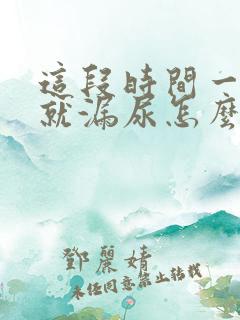 這段時間一
就漏尿怎麼
鄧麗婧
未經同意禁止轉載